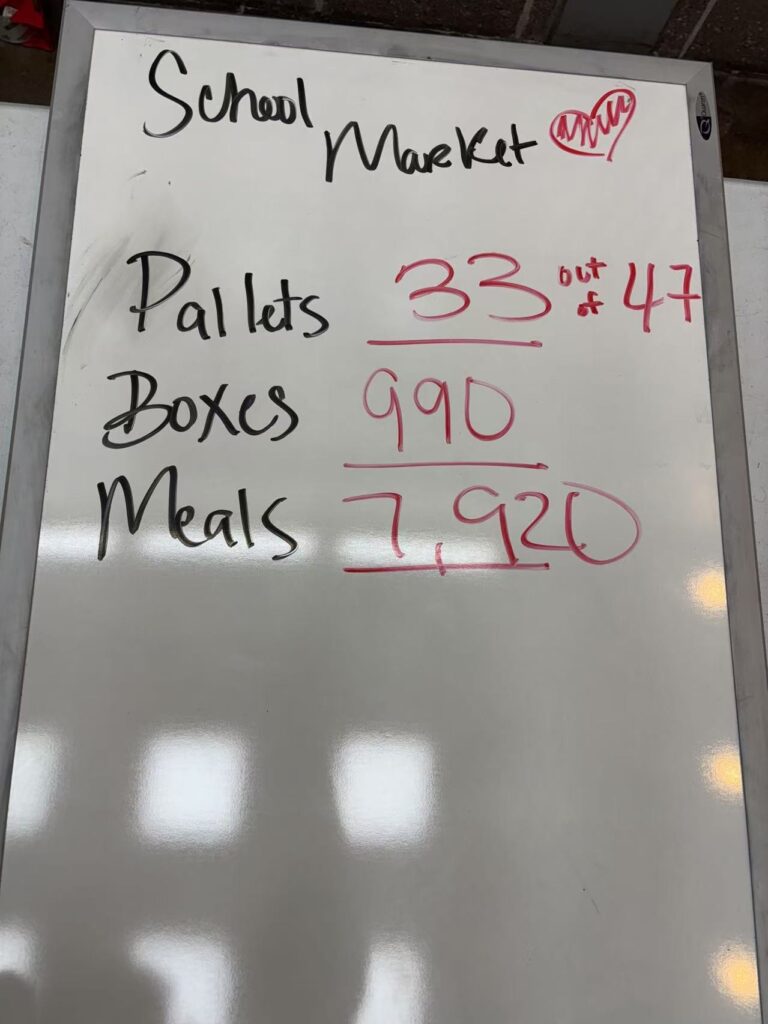 School
Market
Pallets 33 out of 47
Boxes 990
Meals 7,920